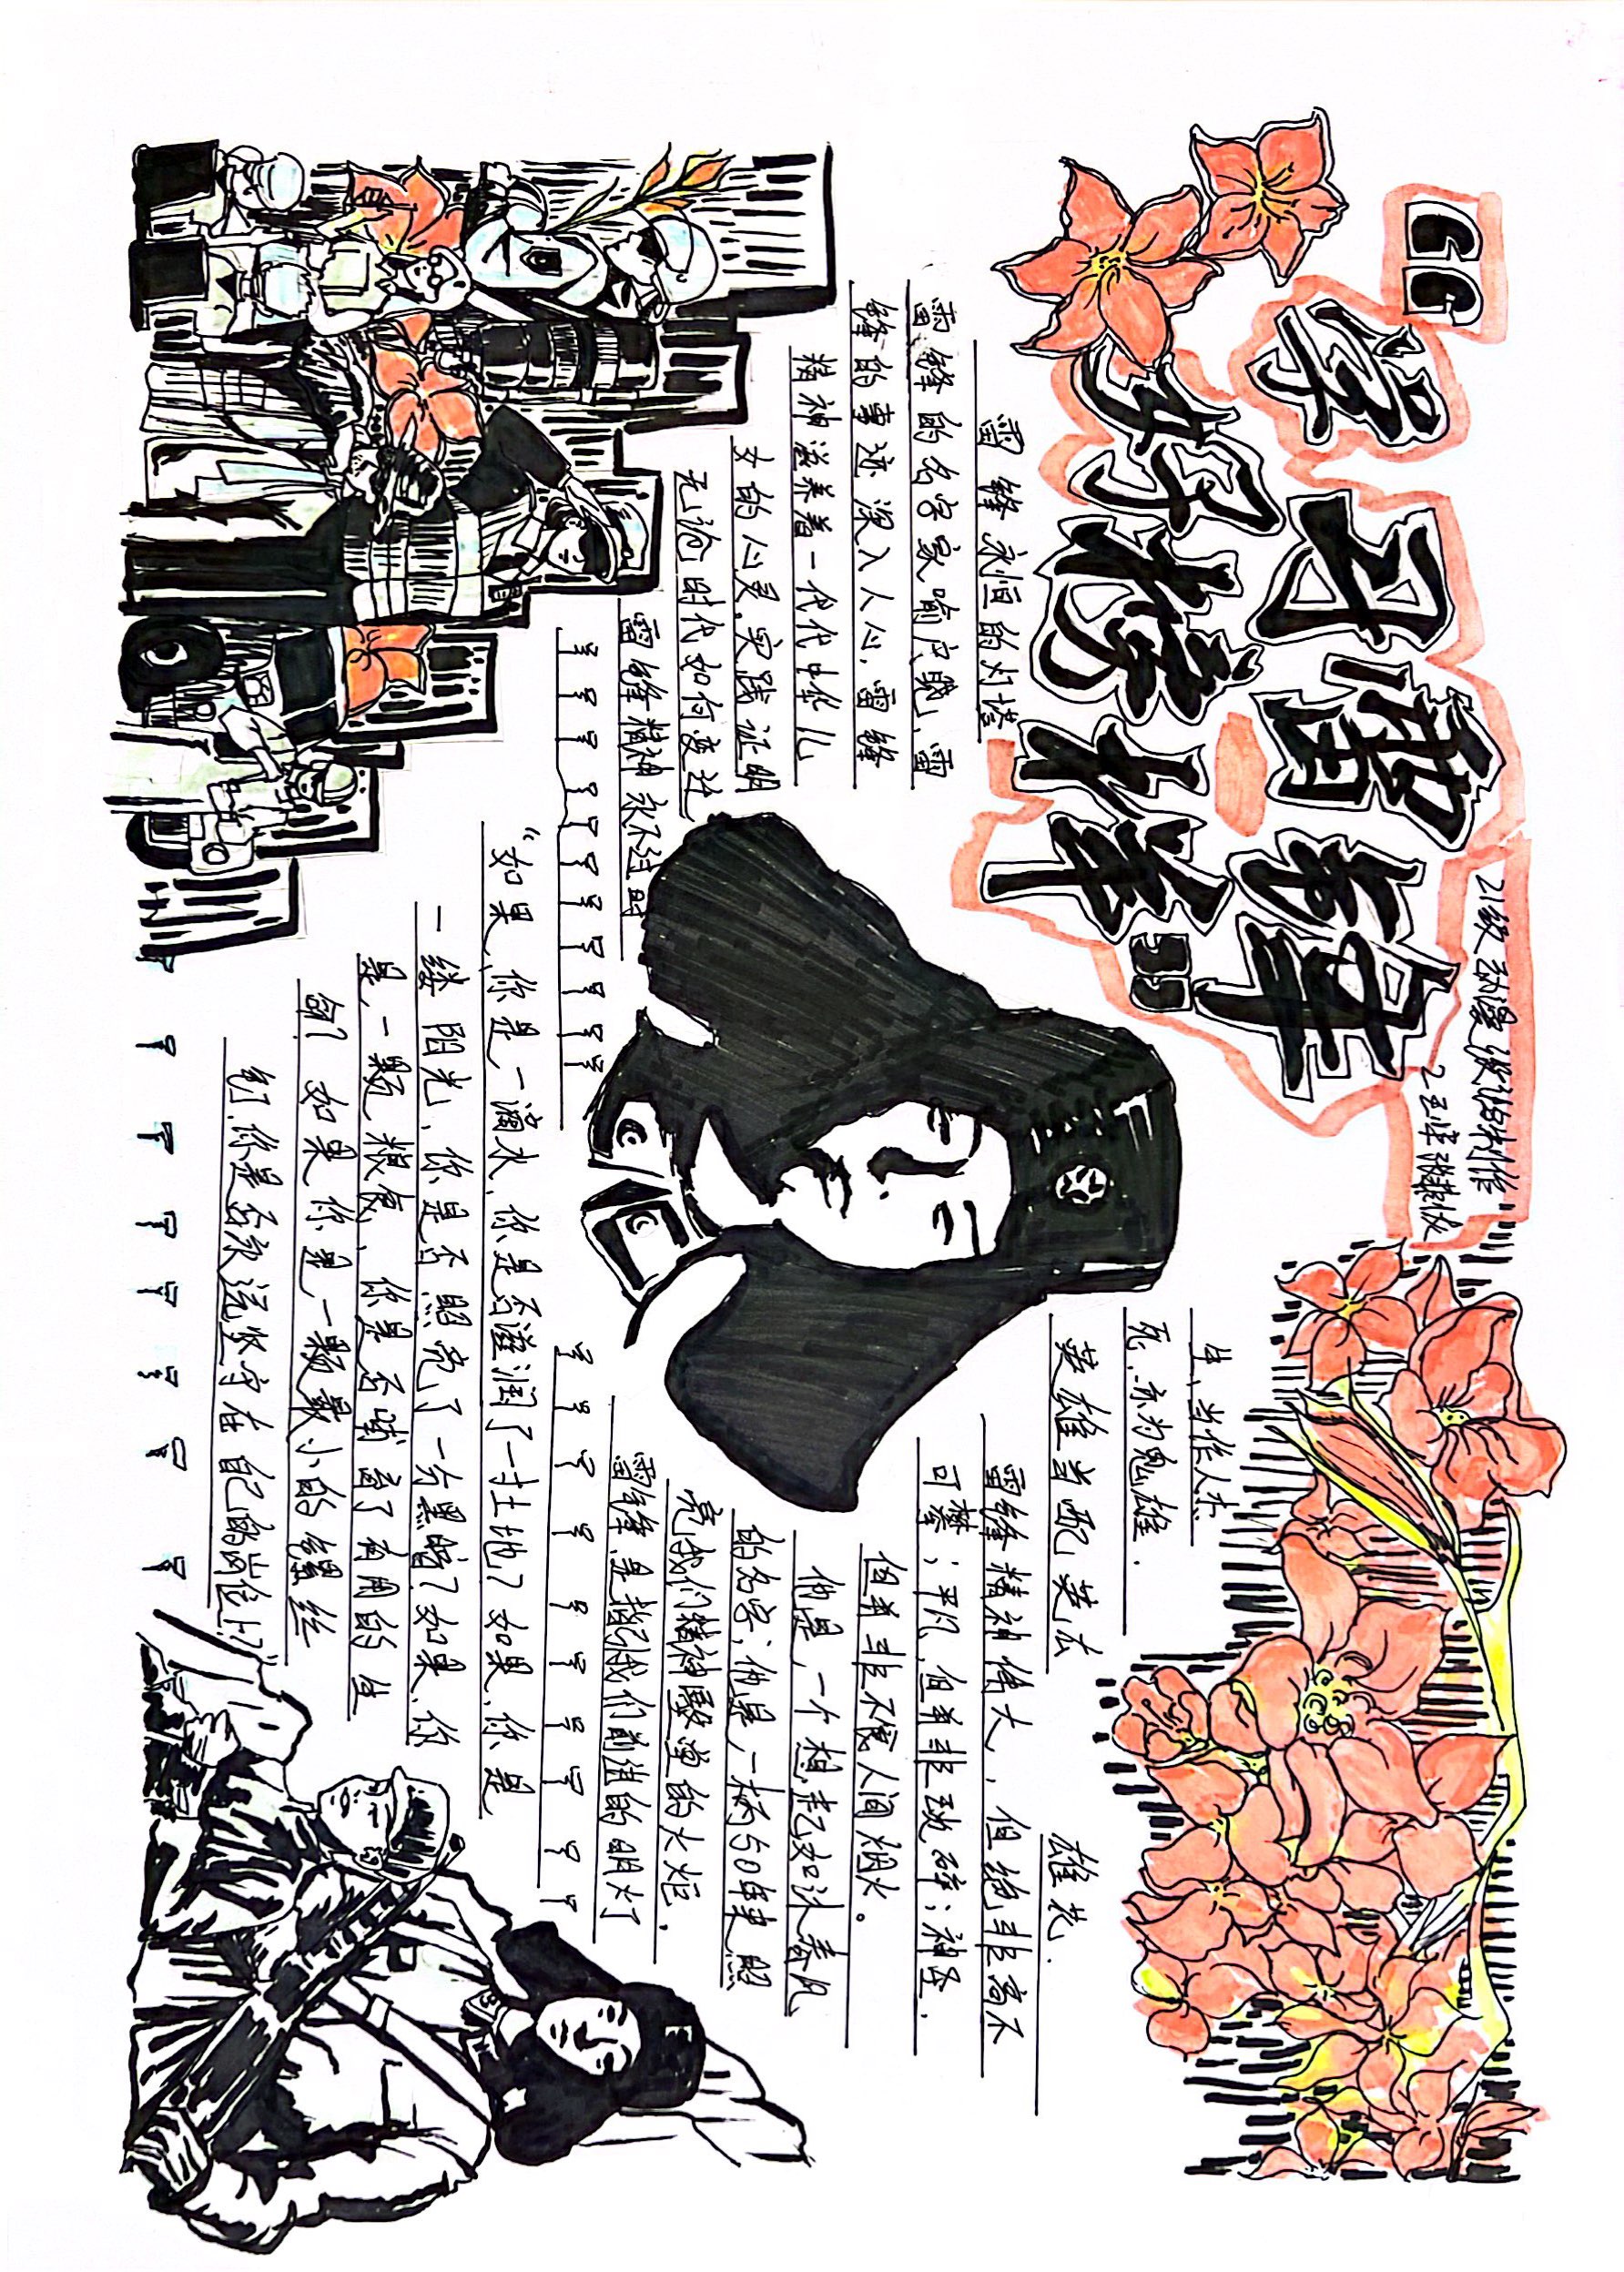 “学习雷锋
好榜样”
21级动漫设计与制作
雷锋永恒的灯塔
雷锋的名字家喻户晓,雷
锋的事迹深入人心,雷锋
精神滋养着一代代中华儿
女的心灵,实践证明
无论时代如何变迁
雷锋精神永不过时
生,当作人杰
死,亦为鬼雄.
英雄当配英法
雄花.
雷锋精神伟大,但绝非高不
可攀;平凡,但并非琐碎;神圣,
但并非不食人间烟火。
他是,一个想起如沐春风
的名字,他是,一柄50年来照
亮我们精神殿堂的火炬,
雷锋是指引我们前进的明灯
“如果,你是一滴水,你是否滋润了一寸土地?如果,你是
一缕阳光,你是否照亮了一分黑暗?如果,你
是,一颗,粮食,你是否哺育了有用的生
命? 如果你是,一颗最小的螺丝
钉,你是否永远坚守在自己的岗位上?”